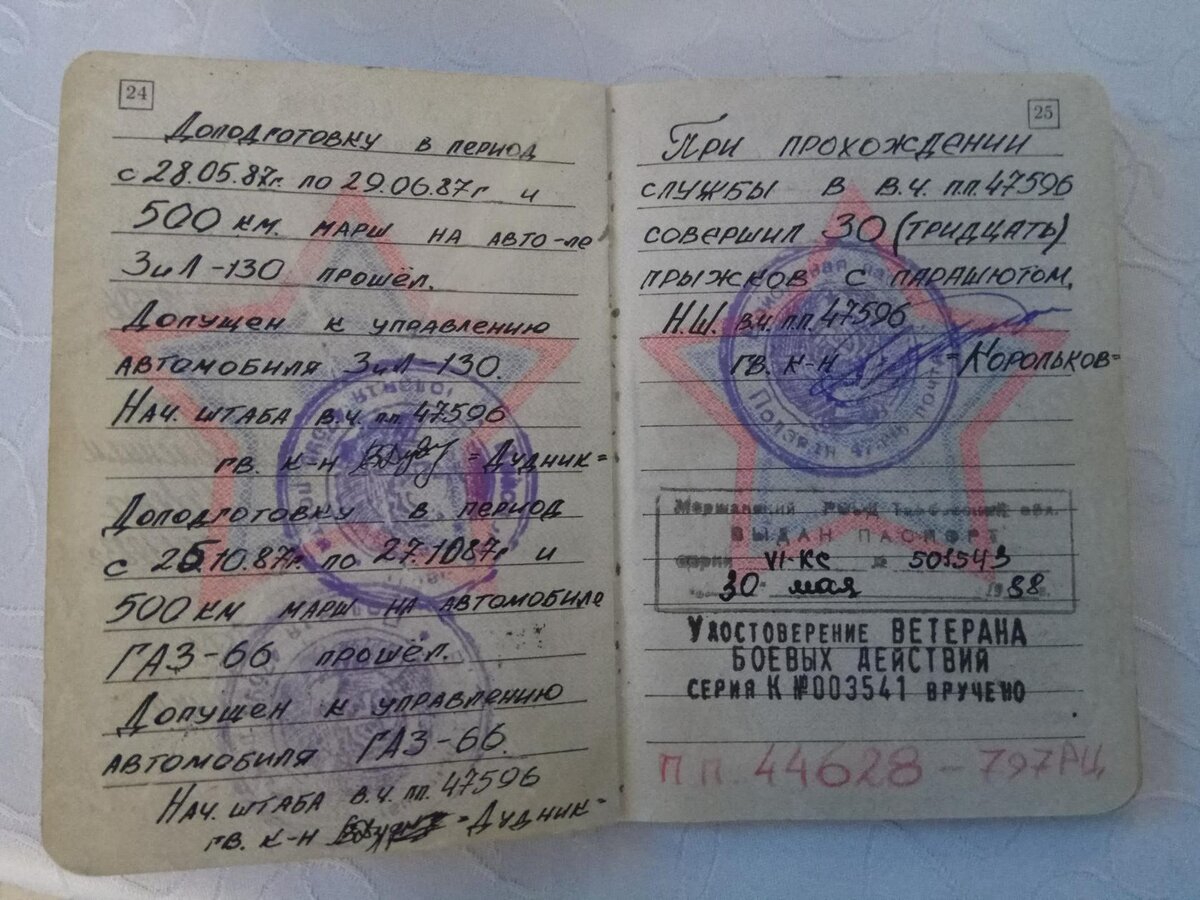 24
Доподготовку в период
с 28.05.87г. по 29.06.87г и
500 км. марш на авто-ле
ЗиЛ-130 прошёл.
Допущен к управлению
автомобиля ЗиЛ-130.
Нач. штаба в.ч. пп 47596
гв. к-н =Дудник=
Доподготовку в период
с 25.10.87г. по 27.10.87г и
500 км марш на автомобиле
ГАЗ-66 прошёл.
Допущен к управлению
автомобиля ГАЗ-66.
Нач. штаба в.ч. пп. 47596
гв. к-н =Дудник=
25
При прохождении
службы в в.ч. пп.47596
совершил 30 (тридцать)
прыжков с парашютом.
Н.Ш. в.ч. пп.47596
гв. к-н =Корольков=
Полевая почта
обл.
ВЫДАН ПАСПОРТ
серии VI-КС № 501543
30 мая 1988г.
УДОСТОВЕРЕНИЕ ВЕТЕРАНА
БОЕВЫХ ДЕЙСТВИЙ
СЕРИЯ К №003541 ВРУЧЕНО
П.П. 44628 - 797РЦ